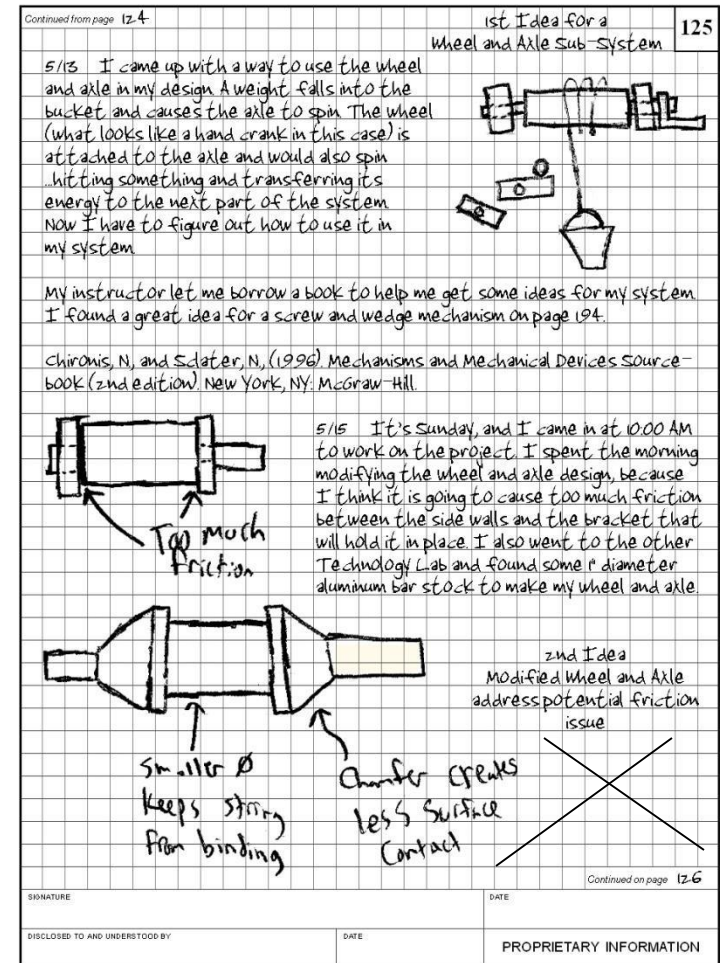 Continued from page 124
1st Idea for a
Wheel and Axle Sub-System
125
5/13 I came up with a way to use the wheel
and axle in my design. A weight falls into the
bucket and causes the axle to spin. The wheel
(what looks like a hand crank in this case) is
attached to the axle and would also spin
...hitting something and transferring its
energy to the next part of the system.
Now I have to figure out how to use it in
my system.
My instructor let me borrow a book to help me get some ideas for my system.
I found a great idea for a screw and wedge mechanism on page 194.
Chironis, N, and Sclater, N, (1996). Mechanisms and Mechanical Devices Source-
book (2nd edition). New York, NY: McGraw-Hill.
5/15 It's Sunday, and I came in at 10:00 AM
to work on the project. I spent the morning
modifying the wheel and axle design, because
I think it is going to cause too much friction
between the side walls and the bracket that
will hold it in place. I also went to the other
Technology Lab and found some 1" diameter
aluminum bar stock to make my wheel and axle.
Too much
friction
2nd Idea
Modified Wheel and Axle
address potential friction
issue
Smaller Ø
keeps string
from binding
Chamfer creates
less surface
contact
Continued on page 126
SIGNATURE
DATE
DISCLOSED TO AND UNDERSTOOD BY
DATE
PROPRIETARY INFORMATION